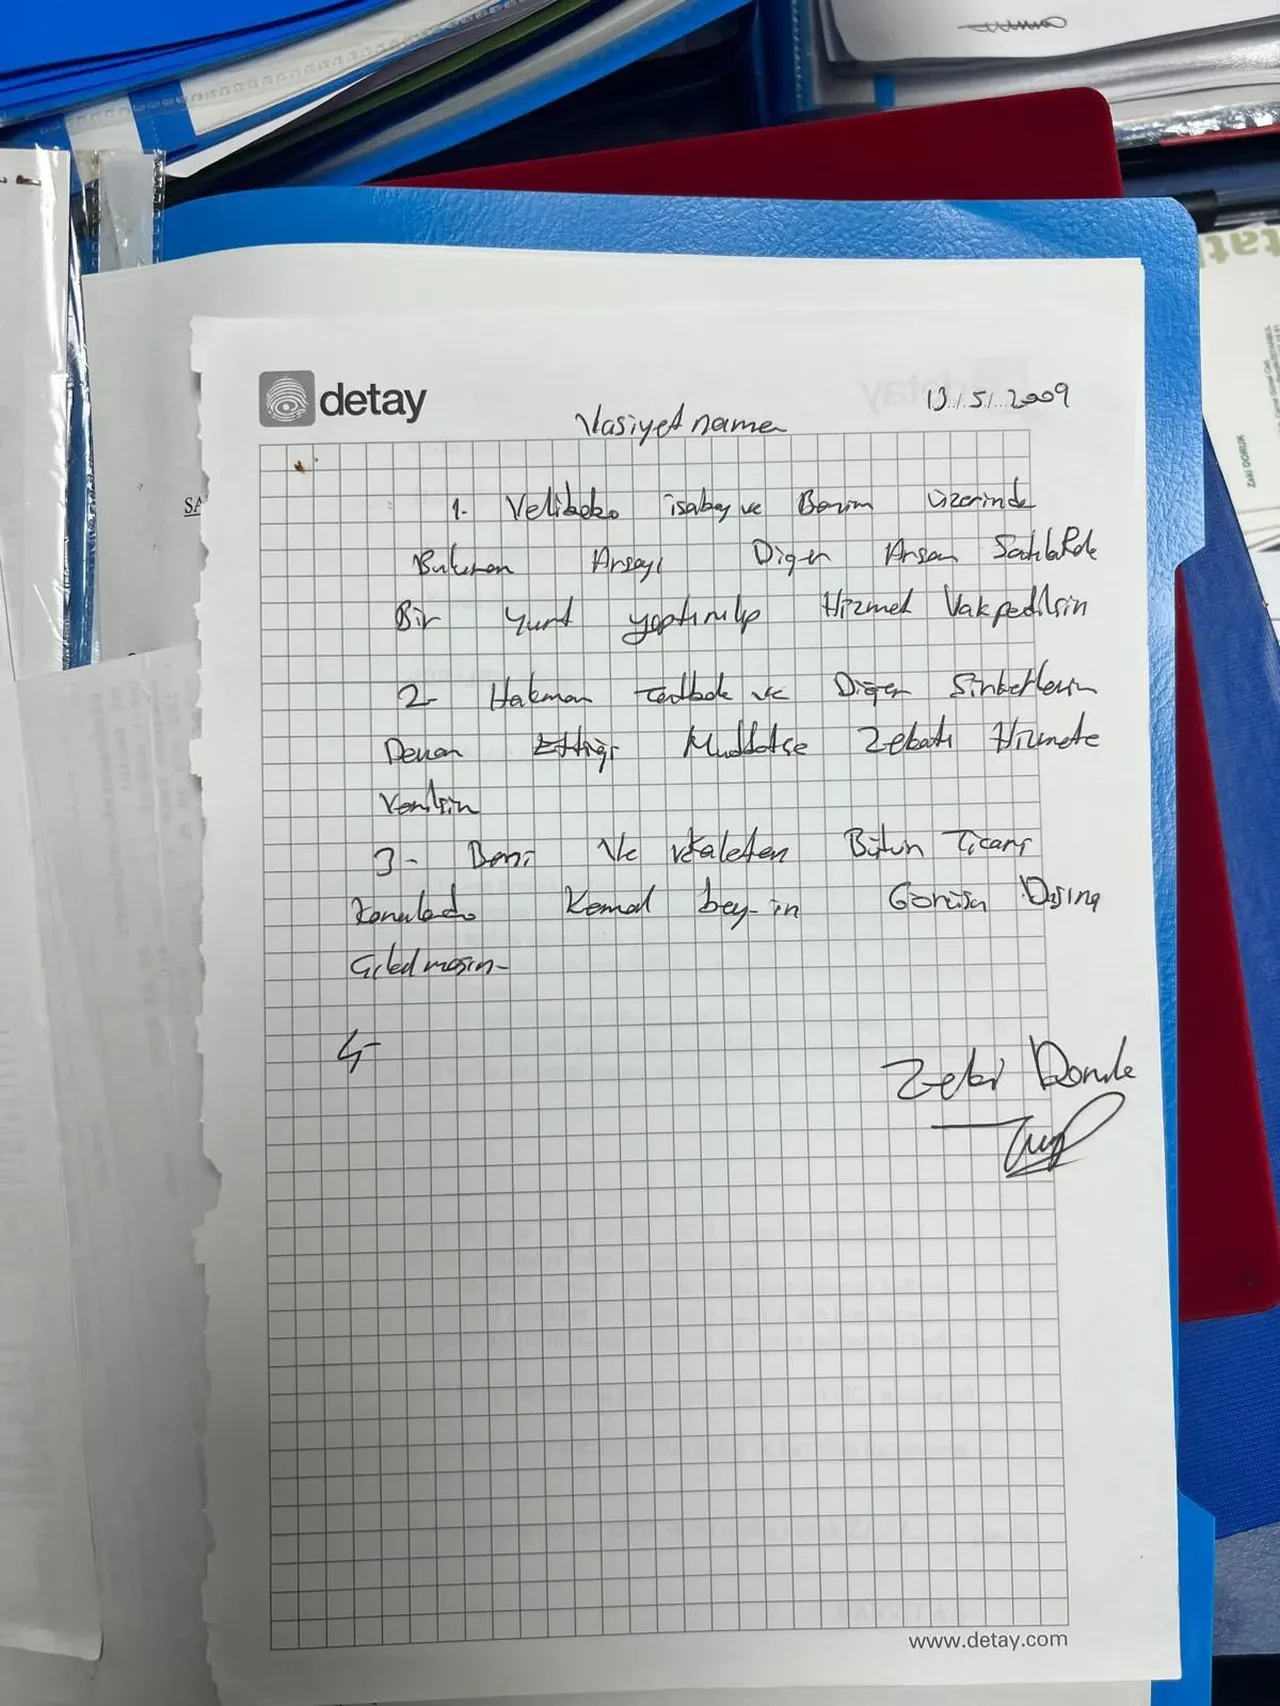 detay
13/5/2009
Vasiyetname
1. Velibaba isabey ve Benim üzerinde
Bulunan Arsayı Diğer Arsam Satılıp
Bir Yurt yaptırılıp Hizmet Vakfedilsin
2- Hakman ve Diğer Şirketlerin
Devam Ettiği Müddetçe Zekatı Hizmete
Verilsin
3- Beni Ve vekaleten Bütün Ticari
konularda Kemal bey-in Görüşü Dışına
Çıkılmasın-
4-
Zeki Doruk
www.detay.com
Zeki DORUK